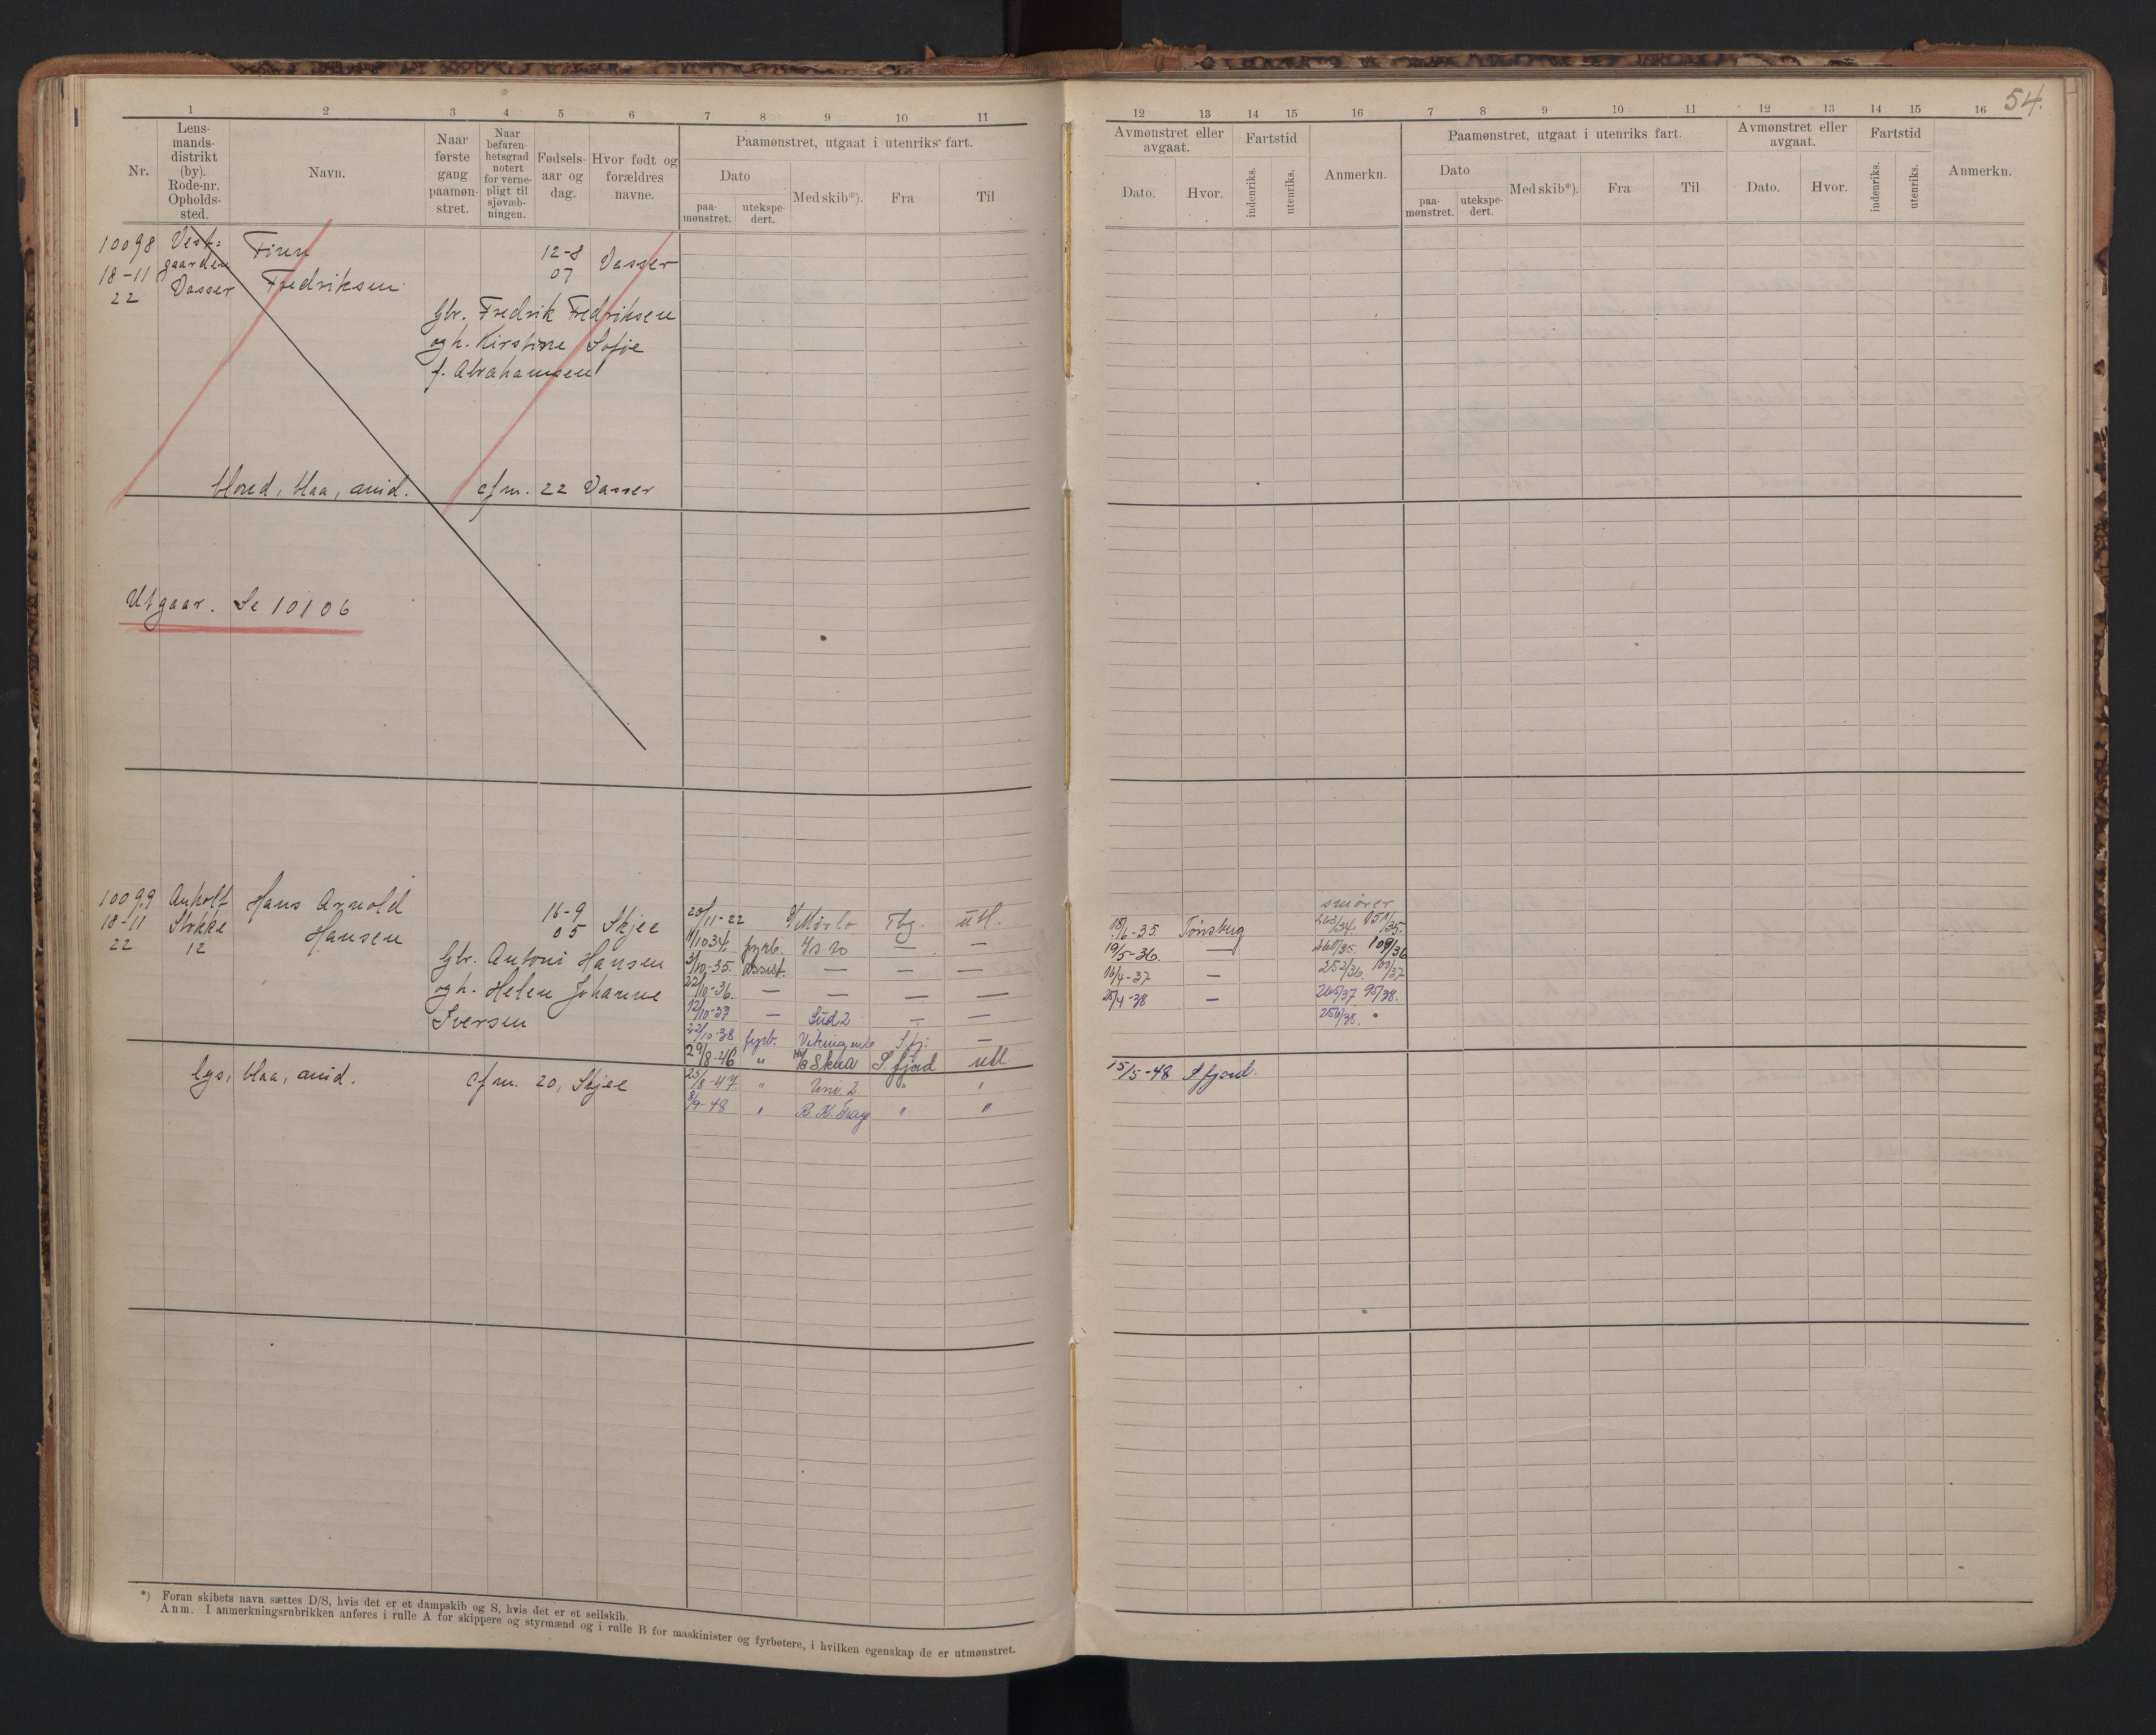 54.
1 2 3 4 5 6 7 8 9 10 11
Nr.
Lens-
mands-
distrikt
(by).
Rode-nr.
Opholds-
sted.
Navn.
Naar
første
gang
paamøn-
stret.
Naar
befaren-
hetsgrad
notert
for verne-
pligt til
sjøvæb-
ningen.
Fødsels-
aar og
dag.
Hvor født og
forældres
navne.
Paamønstret, utgaat i utenriks fart.
Dato
paa-
mønstret.
utekspe-
dert.
Med skib*).
Fra
Til
10098 Vest-
gaarden
18-11 Vasser
22
Finn
Fredriksen
12-8
07
Vasser
Gbr. Fredrik Fredriksen
og h. Kirstine Sofie
f. Abrahamsen
blond, blaa, mid. cfm. 22 Vasser
Utgaar. Se 10106
10099 Anholt
18-11 Stokke
22 12
Hans Arnold
Hansen
16-9
05
Skjee
Gbr. Antoni Hansen
og h. Helen Johanne
Iversen
lys, blaa, mid. cfm. 20, Skjee
20/11-22 Tbg. utl.
1/10 34. fyrb. — —
3/10-35. assist. — — —
22/10-36. — — — —
12/10-37 — Süd 2 — —
22/10-38 fyrb. Vikingen Sfj. —
29/8-46 " Skua S.fjord utl
25/8-47 " Uni. 2 " "
8/9-48 " R. K. Gray " "
*) Foran skibets navn sættes D/S, hvis det er et dampskib og S, hvis det er et seilskib.
Anm. I anmerkningsrubrikken anføres i rulle A for skippere og styrmænd og i rulle B for maskinister og fyrbøtere, i hvilken egenskap de er utmønstret.
12 13 14 15 16 7 8 9 10 11 12 13 14 15 16
Avmønstret eller
avgaat.
Dato.
Hvor.
Fartstid
indenriks.
utenriks.
Anmerkn.
Paamønstret, utgaat i utenriks fart.
Dato
paa-
mønstret.
utekspe-
dert.
Med skib*).
Fra
Til
Avmønstret eller
avgaat.
Dato.
Hvor.
Fartstid
indenriks.
utenriks.
Anmerkn.
smører
18/6-35. Tønsberg 263/34. 151/35.
19/5-36. — 260/35. 109/36
16/4-37 — 252/36. 100/37
25/4-38 — 265/37 95/38.
256/38.
15/5-48 Sfjord.